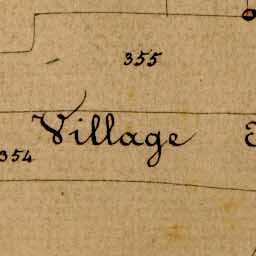 355
Village
354